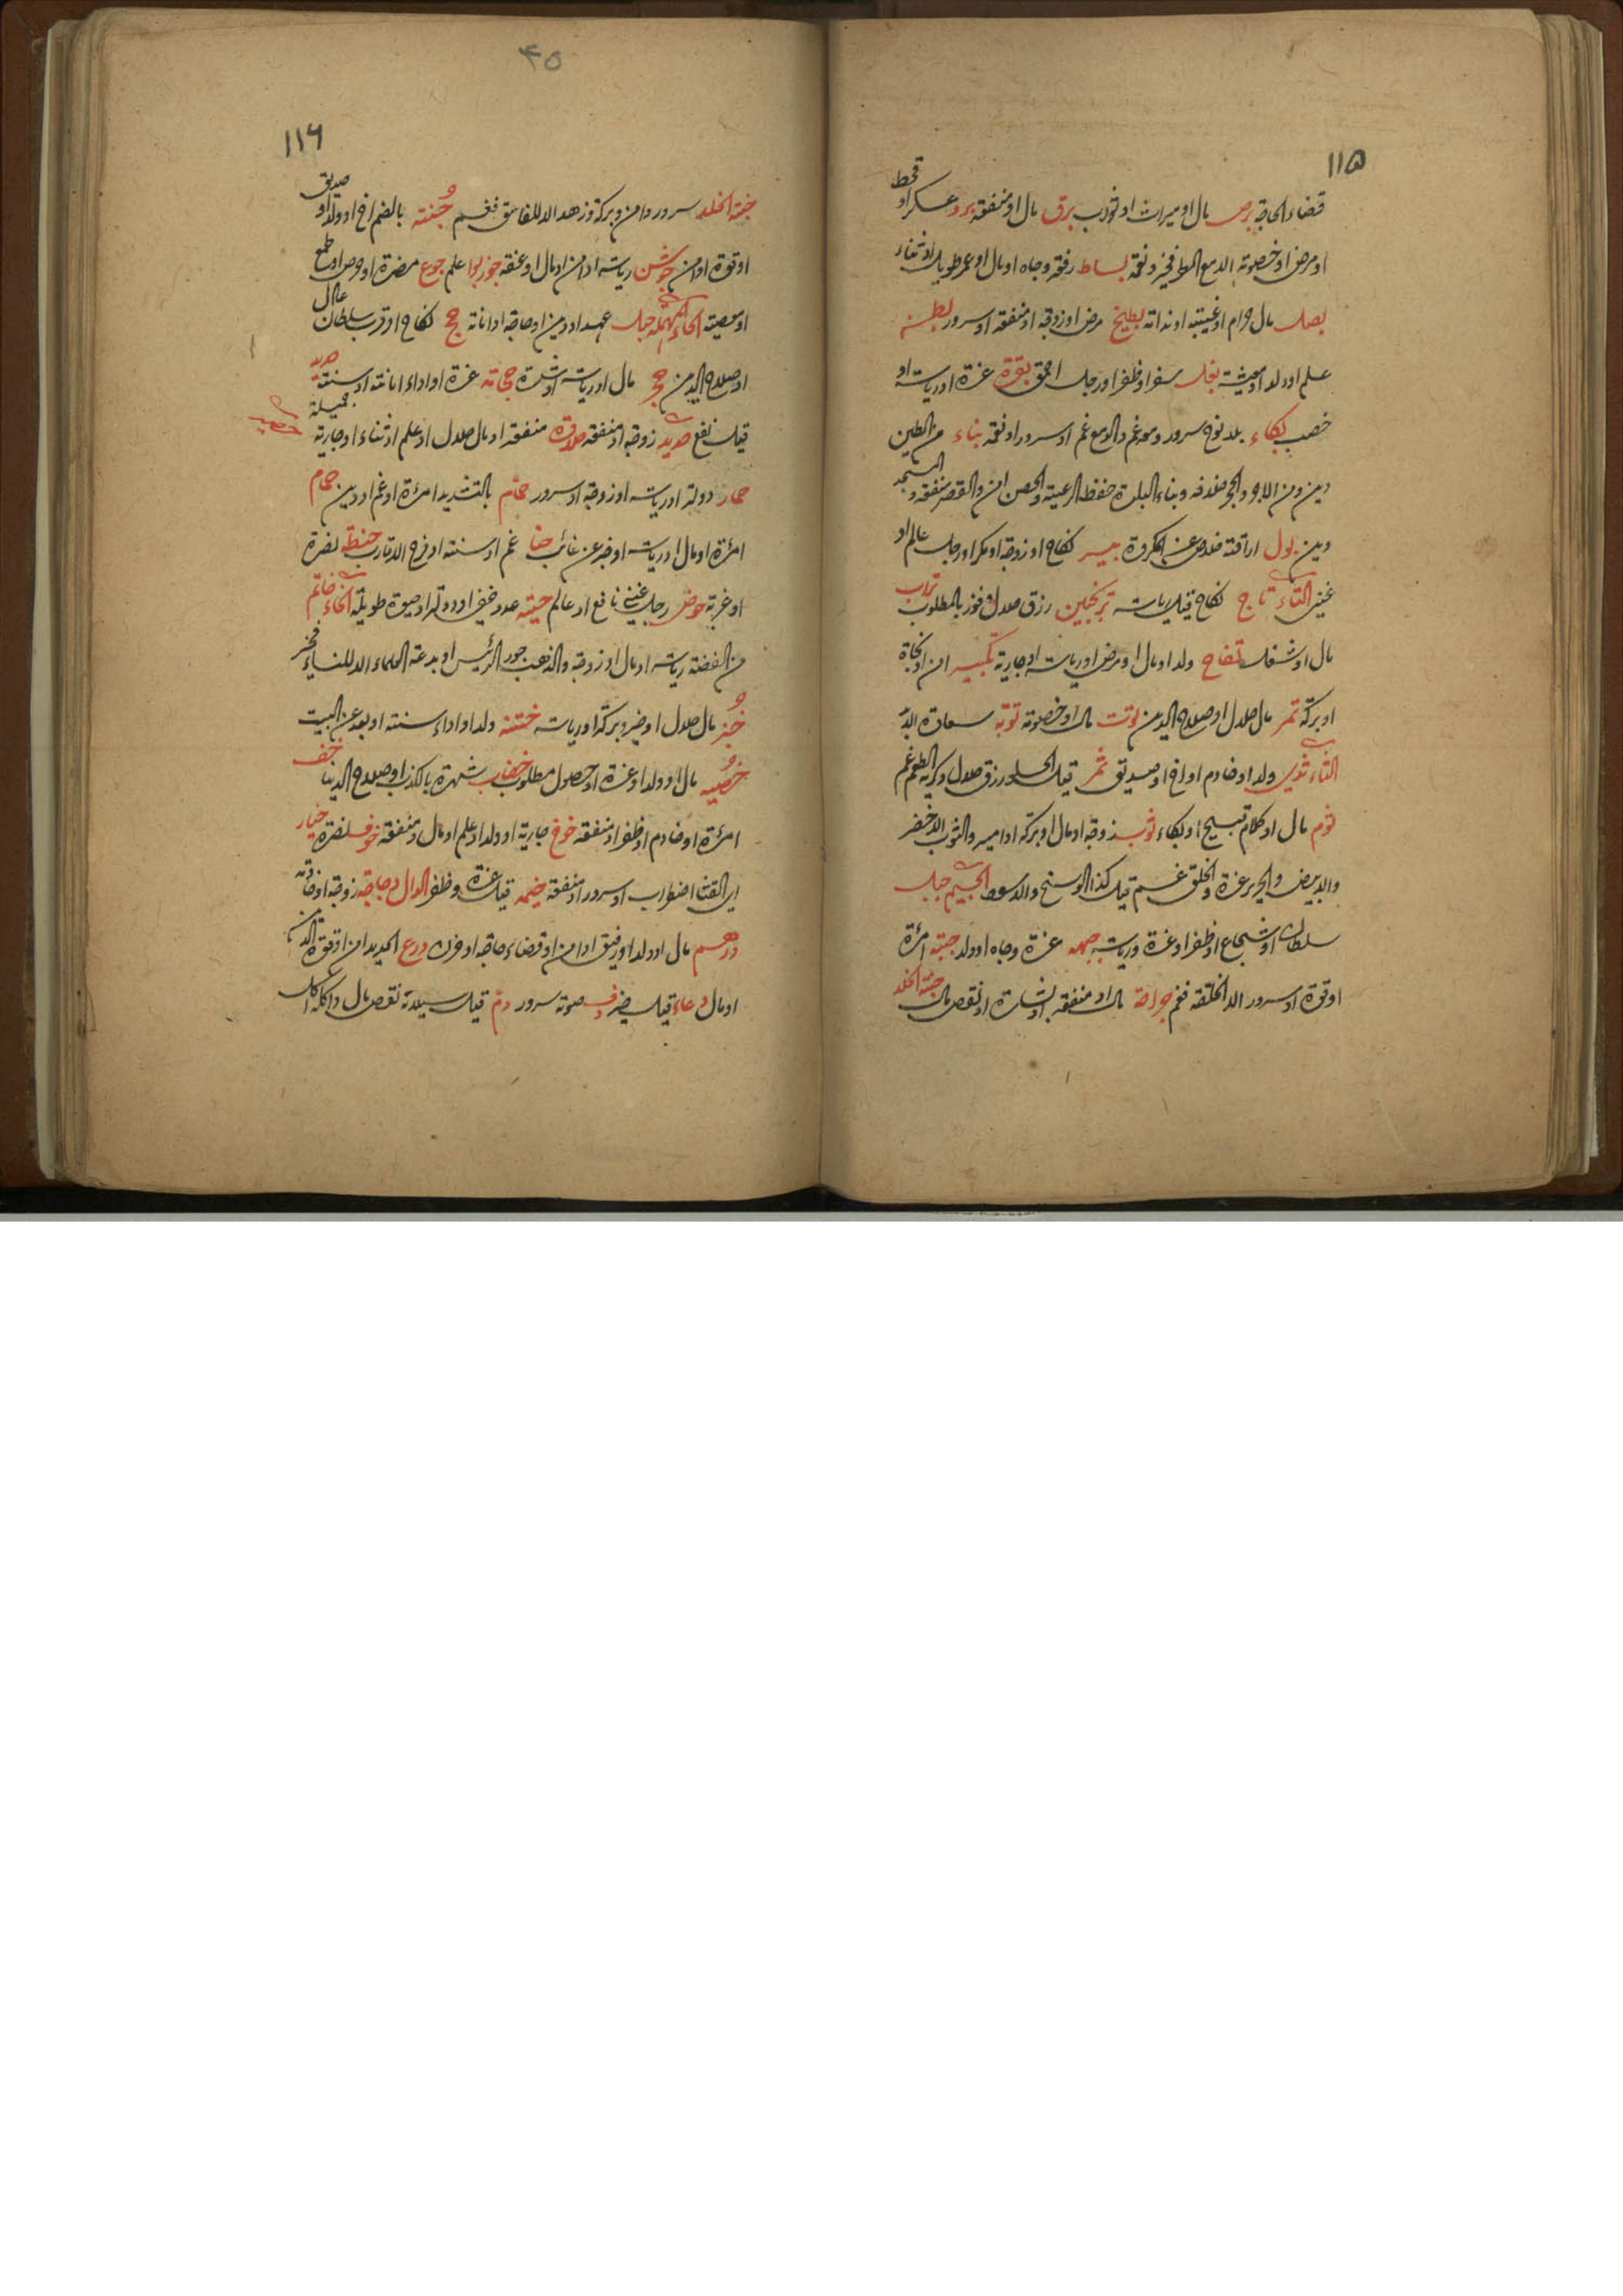 ١١٥
قضاء الحاجة برص مال او ميراث او ثوب برق مال او منفقة برد عسكر او قحط
او مرض او خصومة الا مع المطر فخير ونعمة بساط رفقة وجاه او مال او عمر طويل او ثناء
بصل مال حرام او غيبة او ندامة بطيخ مرض او زوجة او منفعة او سرور بط
علم او ولد او معيشة بغل سفر او ظفر او رجل احمق بقرة عزة او رياسة او
خصب بكاء بلا نوح سرور ومعه غم والا مع غم او سرور او نعمة بناء من الطين
دين ومن الاجر والحجر ضده وبناء البلدة حفظ الرعية والحصن امن والقصر منفعة والمسجد
دين بول اراقته خلاص عن المكروه بيسر نكاح او زوجة او مكر او رجل عالم او
غنى التاء تاج نكاح قيل رياسة ترنجبين رزق حلال وفوز بالمطلوب تراب
مال او شغل تفاح ولد او مال او مرض او رياسة او جارية تكبير امن او نجاة
او بركة تمر مال حلال او صلاح الدين توت مال او خصومة توبة سعادة الابد
الثاء ثدى ولد او خادم او اخ او صديق ثمر قيل الحلو رزق حلال وكريه الطعم غم
ثوم مال او كلام قبيح او بكاء ثوب زوجة او مال او بركة او امير والثوب الاخضر
والابيض والحرير عزة والخلق غم قيل كذا الوسخ والاسود الجيم جبل
سلطان او شجاع او ظفر او عزة ورياسة جبهة عزة وجاه او ولد جبة امرأة
او قوة او سرور الا الخلقة فغم جراحة مال او منفعة او بشارة او نقص مال جنة الخلد
٤٥
١١٦
جنة الخلد سرور وامن وبركة وزهد الا للفاسق فغم جنة بالضم اخ او ولد او صديق
او قوة او امن جوشن رياسة او امن او مال او عفة جوز بوا علم جوع مضرة او حرص او طمع
او معصية الحاء المهملة حبل عهد او دين او حاجة او امانة حج نكاح او قرب سلطان عادل
او صلاح الدين حجر مال او رياسة او شدة حجامة عزة او اداء امانة او سنة
قيل نفع حديد زوجة او منفعة حلاوة منفعة او مال حلال او علم او ثناء او جارية جميلة
حمار دولة او رياسة او زوجة او سرور حمام بالتشديد امرأة او غم او دين حمام
امرأة او مال او رياسة او خبر عن غائب حنا غم او سنة او فرح الاقارب حنطة نضرة
او غربة حوض رجل غنى نافع او عالم حية عدو خفي او دولة او حيوة طويلة الخاء خاتم
من الفضة رياسة او مال او زوجة والذهب جور الرئيس او بدعة العلماء الا للنساء فخير
خبز مال حلال او خير وبركة او رياسة ختنة ولد او اداء سنة او بعد عن البيت
خصية مال او ولد او عزة او حصول مطلوب خضاب شهرة بالكذب او صلاح الدنيا خف
امرأة او خادم او ظفر او منفعة خوخ جارية او ولد او علم او مال او منفعة خوف نصرة خيار
اى القثا اضطراب او سرور او منفعة خيمه قيل عزة وظفر الدال دجاجة زوجة او خادمة
درهم مال او ولد او رفيق او امن او قضاء حاجة او فرح درع الحديد امن او قوة الدين
او مال دعاء قيل خير دف صوته سرور دم قيل سيلانه نقص مال واكله اكل